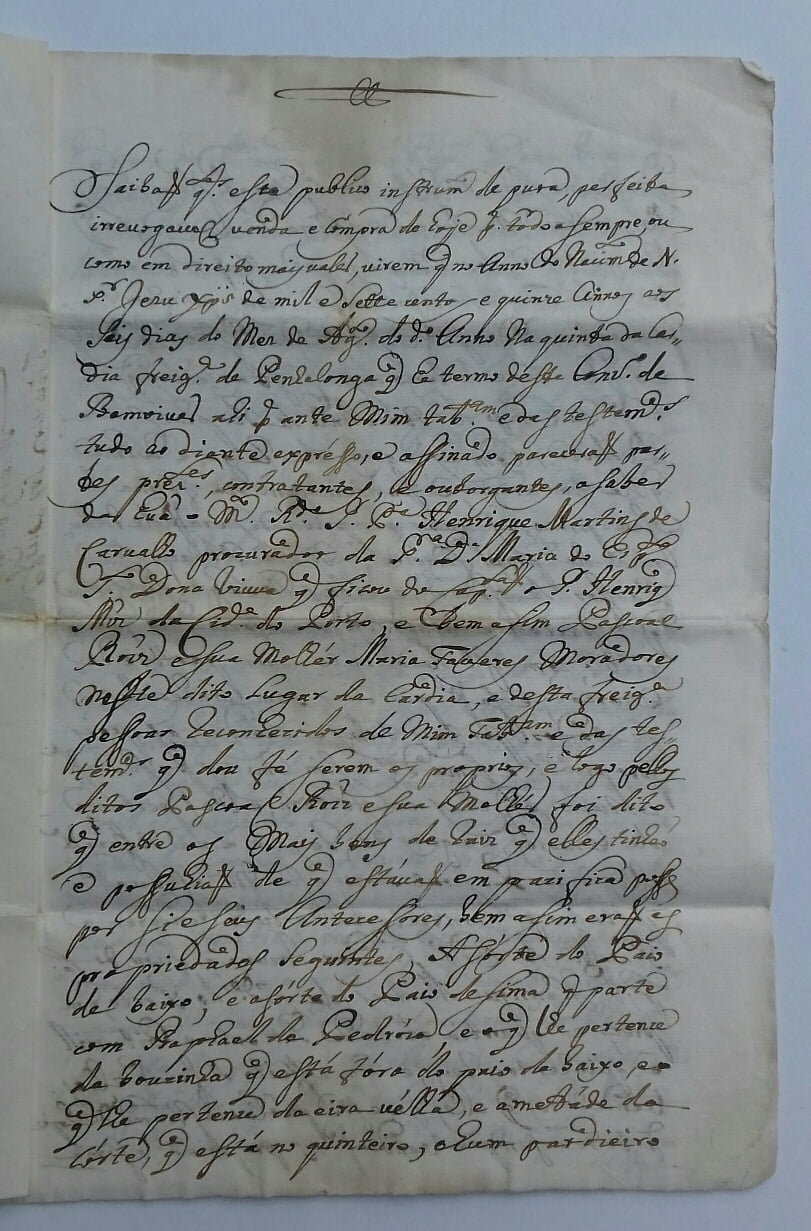 Saibaõ q.tos este publico instrum.to de pura, perfeita
irreuogauel uenda e compra de hoje p.a todo o sempre, ou
como em direito mais ualer, uirem q̃ no Anno do Nacim.to de N.
S.r Jezu Xp̃s de mil e Sette cento, e quinze Annos aos
Seis dias do Mes de Ag.to do d.o Anno Na quinta da Car,,
dia freig.a de Pendalonga q̃ he termo deste Conc.o de
Bemuiuer ahi p ante Mim tab.am e das testem.as
tudo ao diante expresso, e assinado pareceraõ par,,
tes prez.es, contratantes, e outorgantes, a saber
de huã o M.to R.do P. Henrique Martins de
Carualho procurador da S.ra D. Maria do
Dona Viuua q̃ ficou do Cap.am o S. Henriq̃
Miz da Cid.e do Porto, e bem asim Pascoal
Roiz e sua Molhér Maria Tauares Moradores
neste dito lugar da Cardia, e desta freig.a
pessoas reconhecidos de Mim Tab.am e das tes,,
tem.as q̃ dou fé serem os proprios, e logo pellos
ditos Pascoal Roiz e sua Molhér foi dito
q̃ entre os Mais bens de Raiz q̃ elles tinhaõ
e possuhiaõ de q̃ estáuaõ em pacifica posse
por si e seus Antecessores, bem asim eraõ as
propriedades Seguintes, A sórte do Paio
de baixo, e a sórte do Paio de sima q̃ parte
com Raphael da Pedróia e o q̃ lhe pertence
da bouzinha q̃ está fóra do paio de baixo, e o
q̃ lhe pertence da eira uélha, e ametáde da
Córte, q̃ está no quinteiro, e hum pardieiro